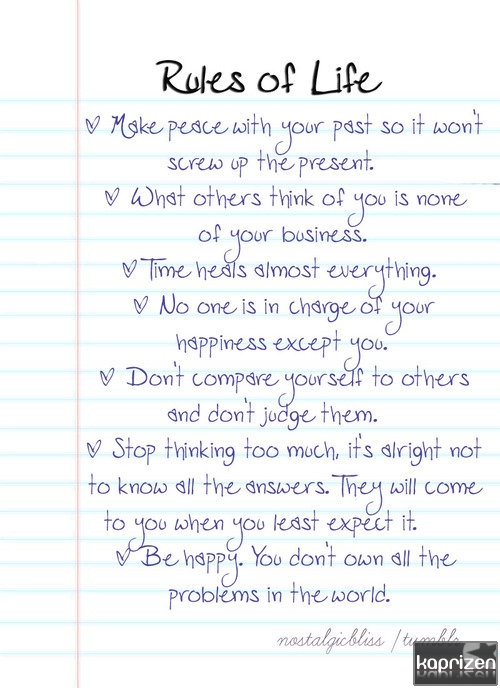 Rules of Life
♡ Make peace with your past so it won't
screw up the present.
♡ What others think of you is none
of your business.
♡ Time heals almost everything.
♡ No one is in charge of your
happiness except you.
♡ Don't compare yourself to others
and don't judge them.
♡ Stop thinking too much, it's alright not
to know all the answers. They will come
to you when you least expect it.
♡ Be happy. You don't own all the
problems in the world.
nostalgicbliss /tumblr
kaprizen